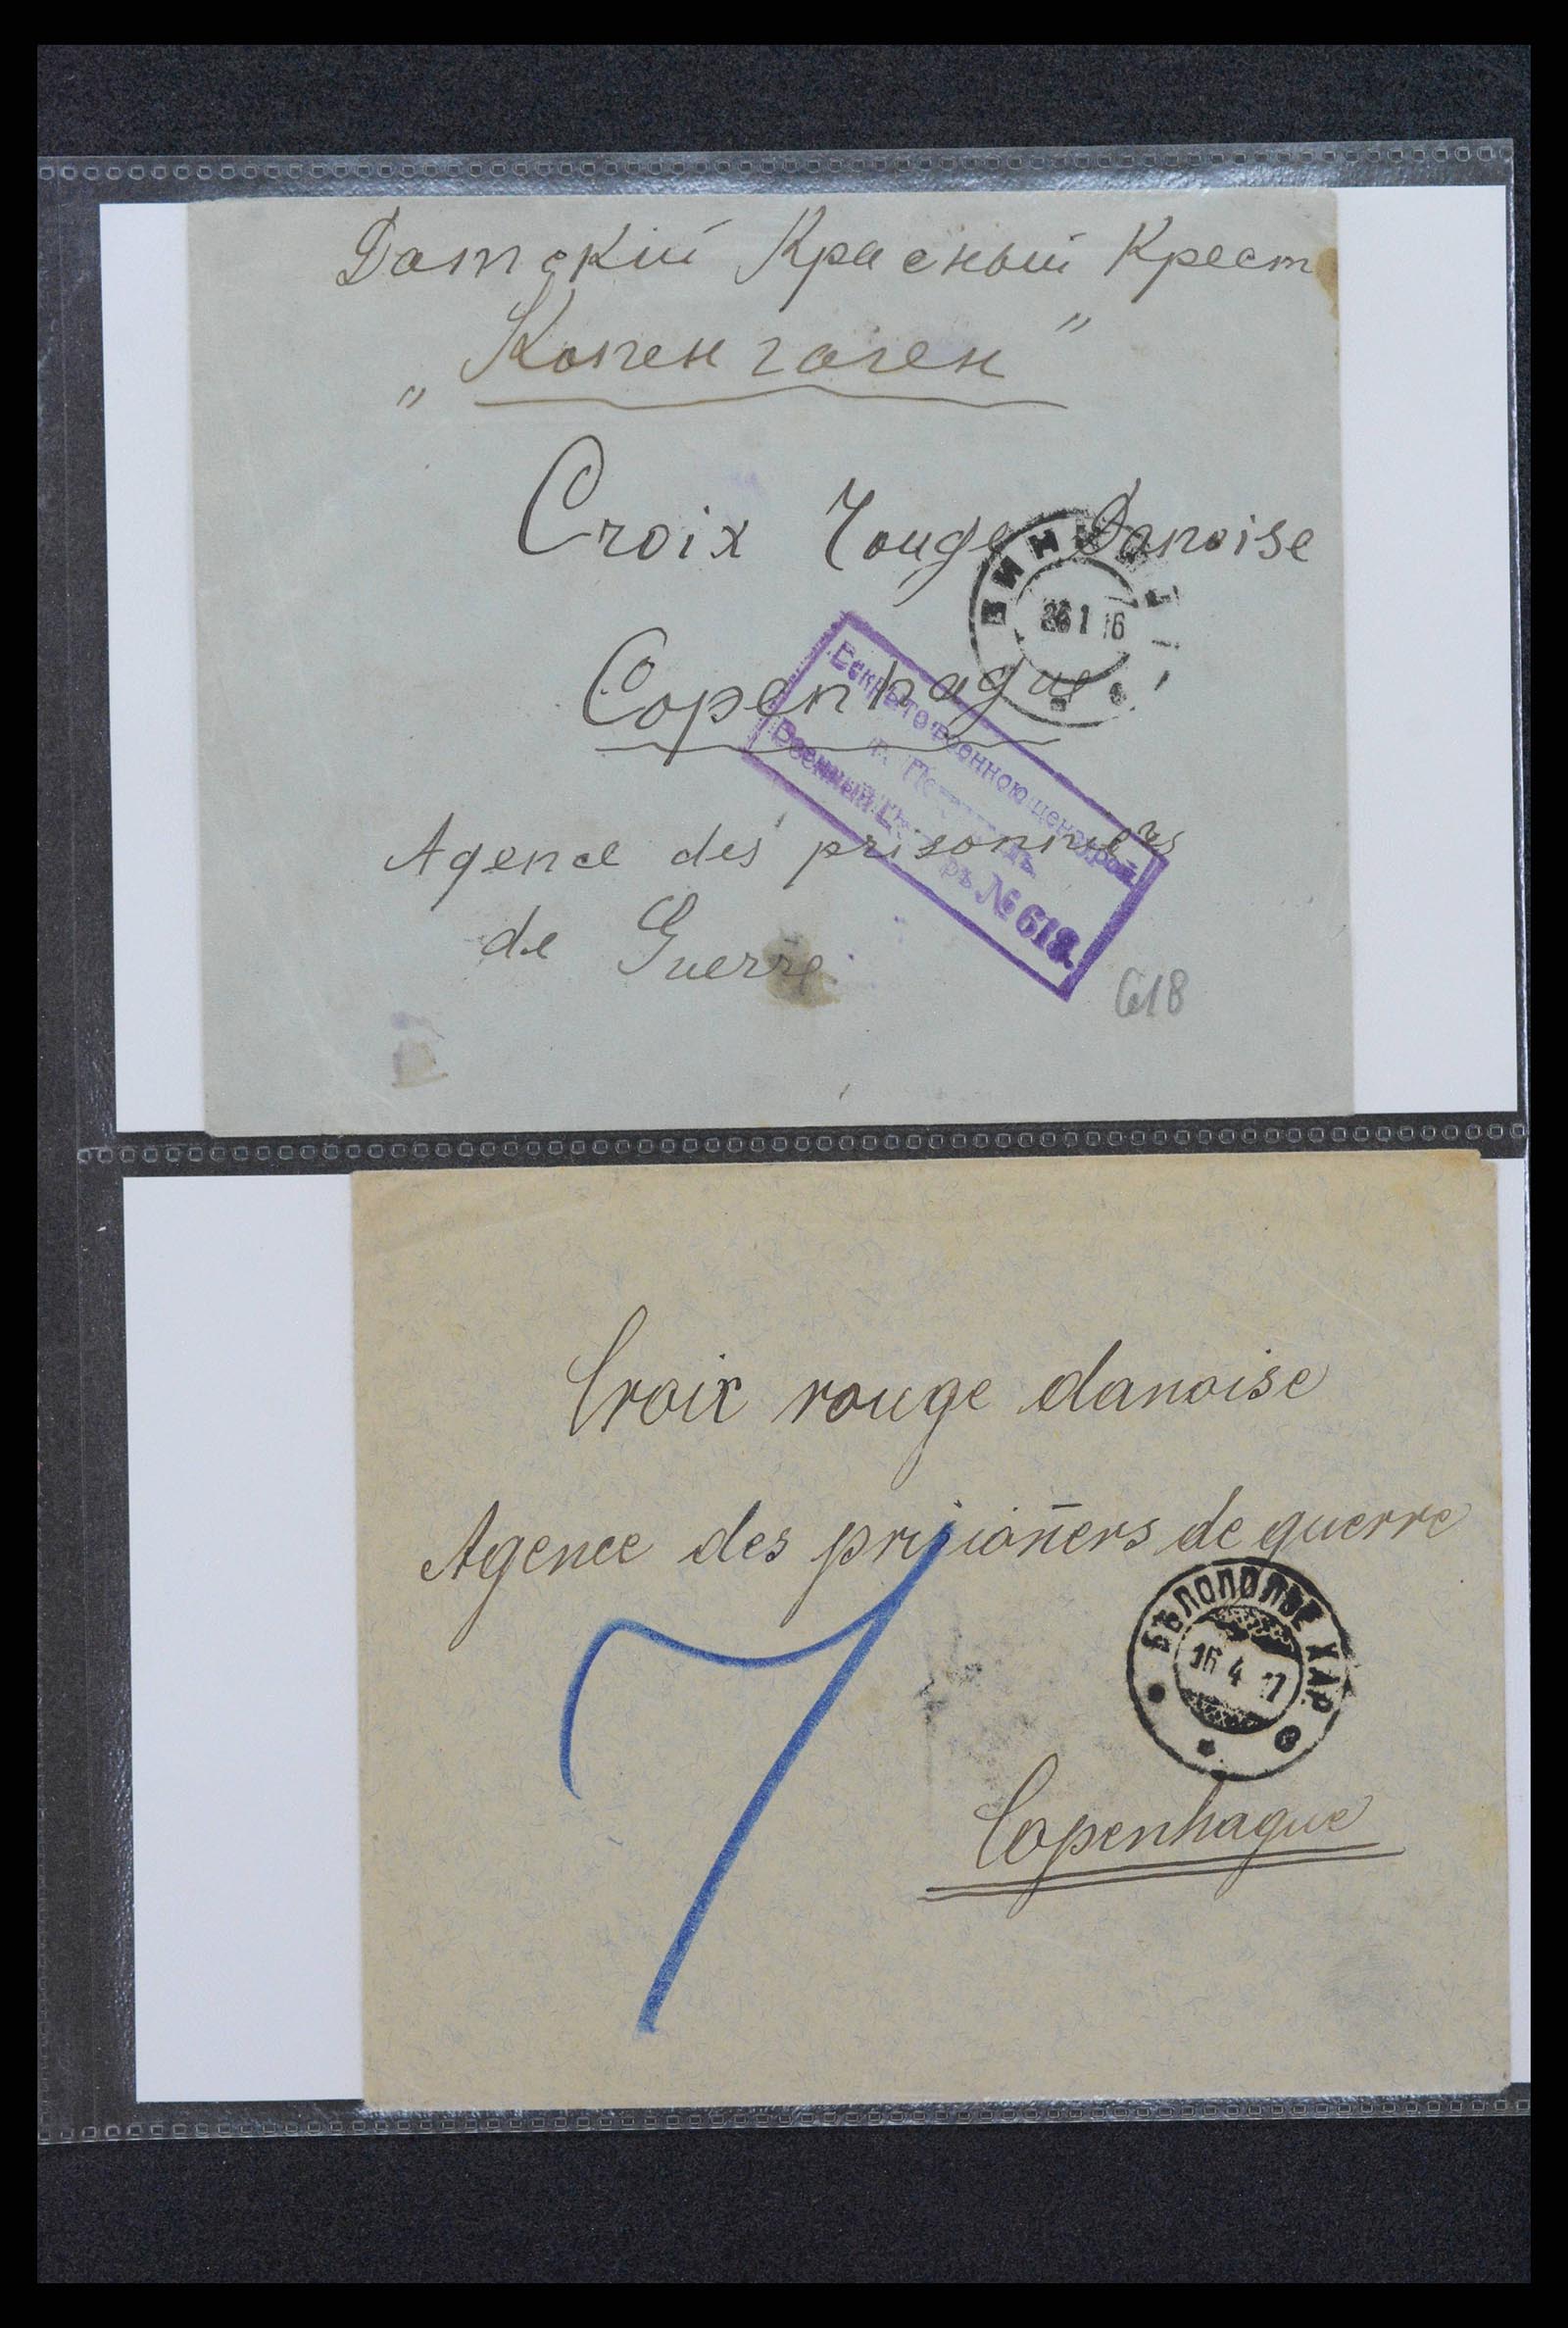 Датскiй Красный Крест
„Копенгаген"
Croix Rouge Danoise
26 1 16
Copenhague
Вскрыто военною цензурой.
г. Петроградъ
Военный Цензоръ № 618.
Agence des prisonniers
de Guerre
618
Croix rouge danoise
Agence des prisioñers de guerre
БѢЛОПОЛЬЕ ХАР.
16 4 17
7
Copenhague